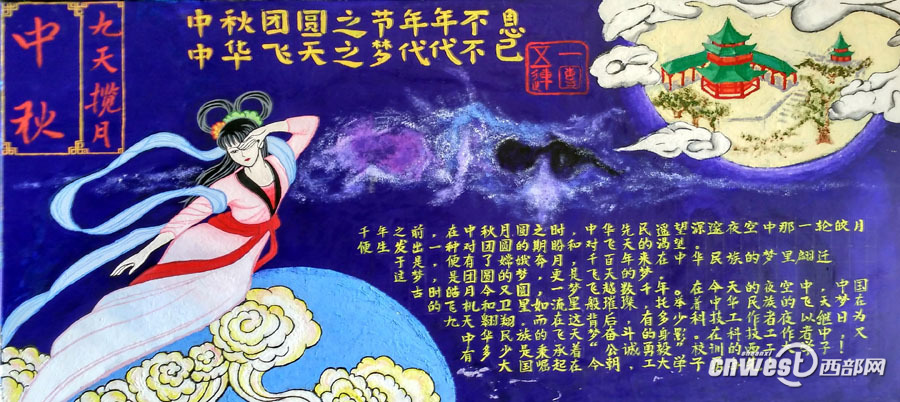 中秋
九天揽月
中秋团圆之节年年不息
中华飞天之梦代代不已
一
五連
千年之前，在中秋月圆之时，中华先民遥望深邃夜空中那一轮皎月
便生发出一种对团圆的期盼和对飞天的渴望。
于是，便有了嫦娥奔月，千百年来在中华民族的梦里翩迁
这梦，是团圆的梦，更是飞天的梦。
古时的皓月今又圆，一梦飞越数千年。在今天的夜空中，中国
的飞机和卫星如流星般璀璨，托举着中华民族的飞天梦在
九天翱翔。而在这背后，有多少科技工作者夜以继日为
中华民族的飞天梦奋斗的身影。在科技工作者中，又
有多少是承着“公诚勇毅”校训的西工大学子！
大国崛起在今朝，工大学子
cnwest 西部网